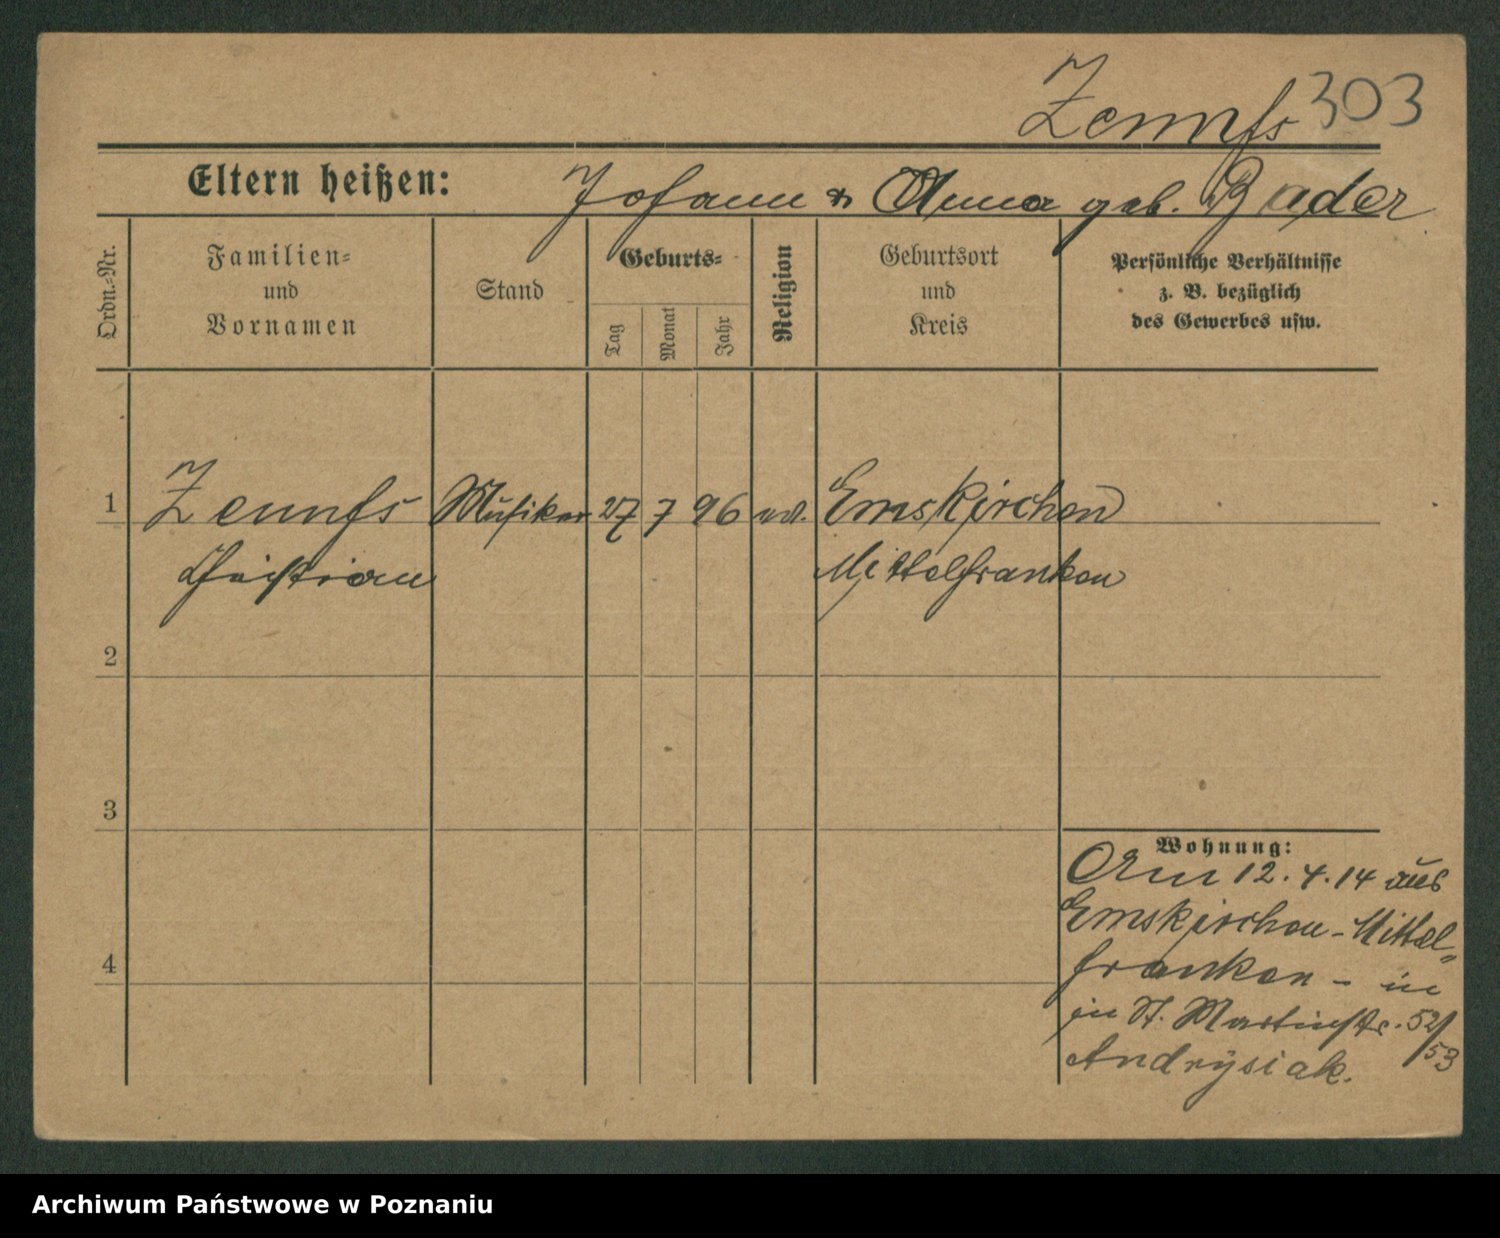 Zennfs 303
Eltern heißen: Johann & Anna geb. Bader
Ordn.-Nr.
Familien- und Vornamen
Stand
Geburts-
Tag
Monat
Jahr
Religion
Geburtsort und Kreis
Persönliche Verhältnisse
z. B. bezüglich
des Gewerbes usw.
1 Zennfs Musiker 27 7 96 ev. Emskirchen
Christian Mittelfranken
2
3
Wohnung:
Am 12.4.14 aus
Emskirchen - Mittel-
4 franken - in
in St. Martinstr. 52/53
Andrysiak.
Archiwum Państwowe w Poznaniu